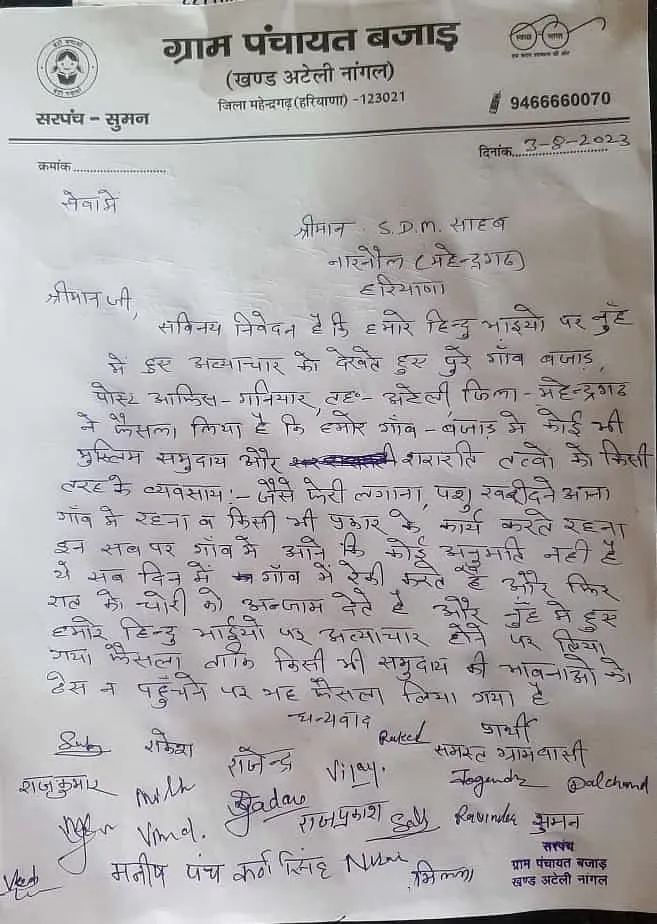 बेटी बचाओ
बेटी पढ़ाओ
स्वच्छ भारत
एक कदम स्वच्छता की ओर
ग्राम पंचायत बजाड़
(खण्ड अटेली नांगल)
जिला महेन्द्रगढ़ (हरियाणा) -123021
9466660070
सरपंच - सुमन
क्रमांक
दिनांक 3-8-2023
सेवा में
श्रीमान S.D.M. साहब
नारनौल (महेन्द्रगढ)
हरियाणा
श्रीमान जी,
सविनय निवेदन है कि हमारे हिन्दु भाइयो पर नुँह
मे हुए अत्याचार को देखते हुए पुरे गाँव बजाड़,
पोस्ट आफिस - गनियार, तह:- अटेली, जिला - महेन्द्रगढ
ने फैसला लिया है कि हमारे गाँव - बजाड़ मे कोई भी
मुस्लिम समुदाय और शरारति तत्वो को किसी
तरह के व्यवसाय:- जैसे फेरी लगाना, पशु खरीदने आना
गाँव मे रहना व किसी भी प्रकार के कार्य करते रहना
इन सब पर गाँव मे आने कि कोई अनुमति नही है
ये सब दिन में गाँव में रैकी करते है और फिर
रात को चोरी को अन्जाम देते है और नुँह मे हुए
हमारे हिन्दु भाईयो पर अत्याचार होने पर लिया
गया फैसला ताकि किसी भी समुदाय की भावनाओ को
ठेस न पहुँचये पर यह फैसला लिया गया है
धन्यवाद
प्रार्थी
समस्त ग्रामवासी
राकेश राजेन्द्र Vijay
राजकुमार Jogender Dalchand
Yadav राजप्रकाश Ravinder सुमन
मनीष पंच कर्ण सिंह
सरपंच
ग्राम पंचायत बजाड़
खण्ड अटेली नांगल